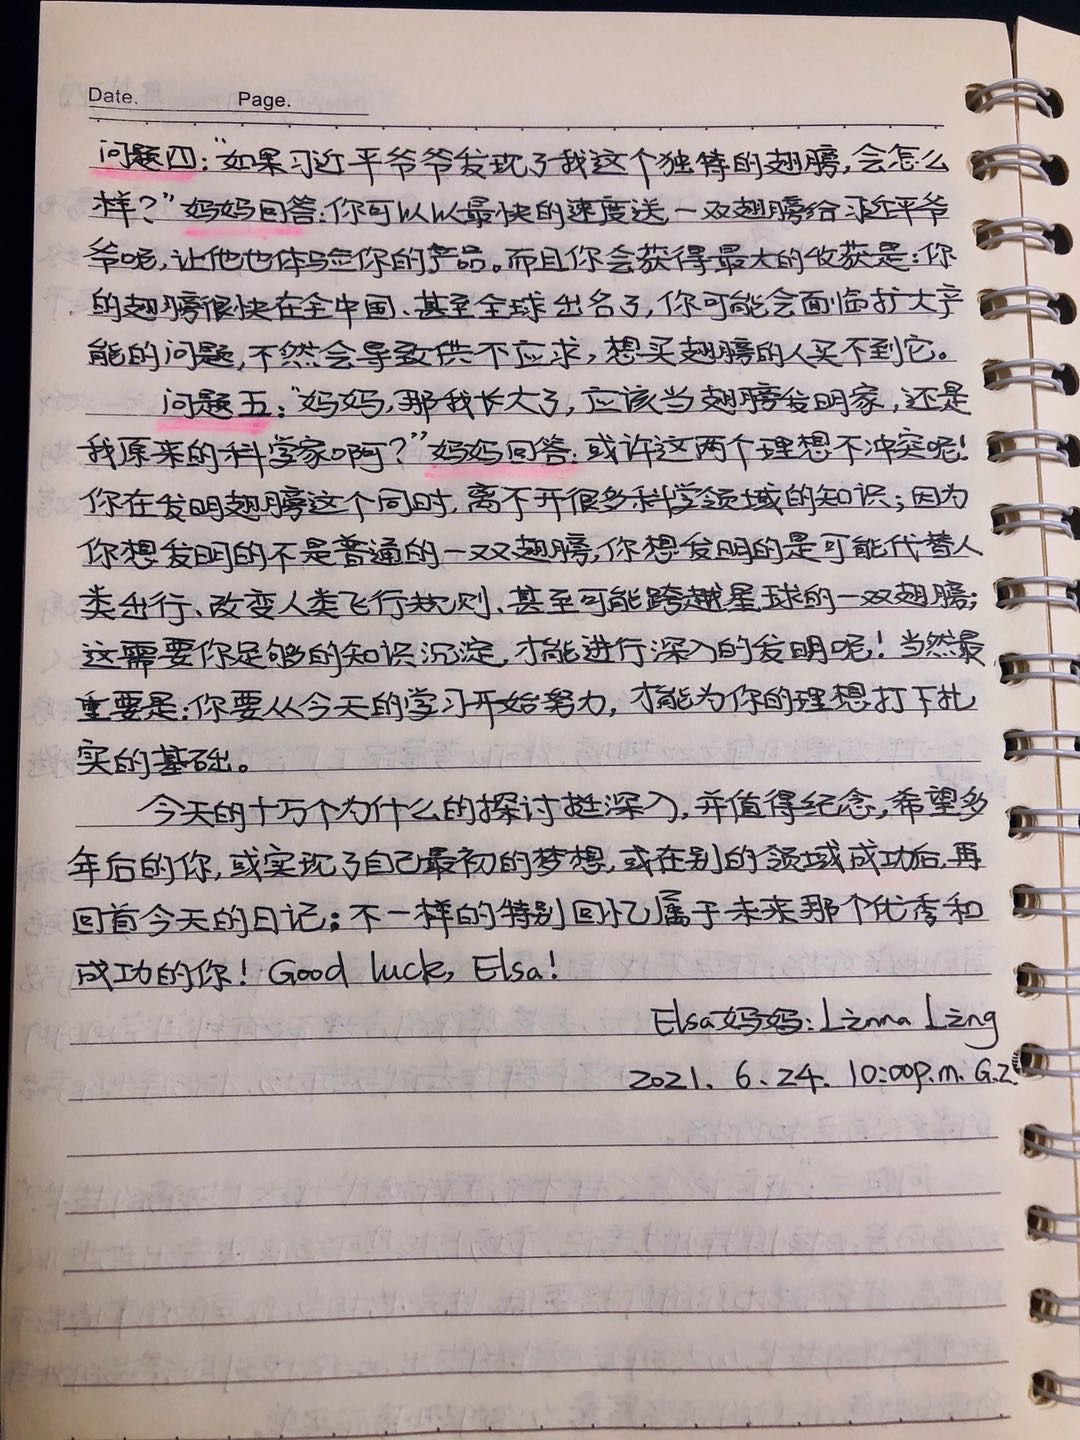 Date. Page.
问题四：“如果习近平爷爷发现了我这个独特的翅膀，会怎么
样？”妈妈回答：你可以以最快的速度送一双翅膀给习近平爷
爷呢，让他也体验你的产品。而且你会获得最大的收获是：你
的翅膀很快在全中国、甚至全球出名了，你可能会面临扩大产
能的问题，不然会导致供不应求，想买翅膀的人买不到它。
问题五：“妈妈，那我长大了，应该当翅膀发明家，还是
我原来的科学家啊？”妈妈回答：或许这两个理想不冲突呢！
你在发明翅膀这个同时，离不开很多科学领域的知识；因为
你想发明的不是普通的一双翅膀，你想发明的是可能代替人
类出行、改变人类飞行规则、甚至可能跨越星球的一双翅膀；
这需要你足够的知识沉淀，才能进行深入的发明呢！当然最
重要是：你要从今天的学习开始努力，才能为你的理想打下扎
实的基础。
今天的十万个为什么的探讨挺深入，并值得纪念，希望多
年后的你，或实现了自己最初的梦想，或在别的领域成功后，再
回首今天的日记；不一样的特别回忆属于未来那个优秀和
成功的你！Good luck, Elsa!
Elsa妈妈：Linna Ling
2021. 6. 24. 10:00p.m. G.Z.